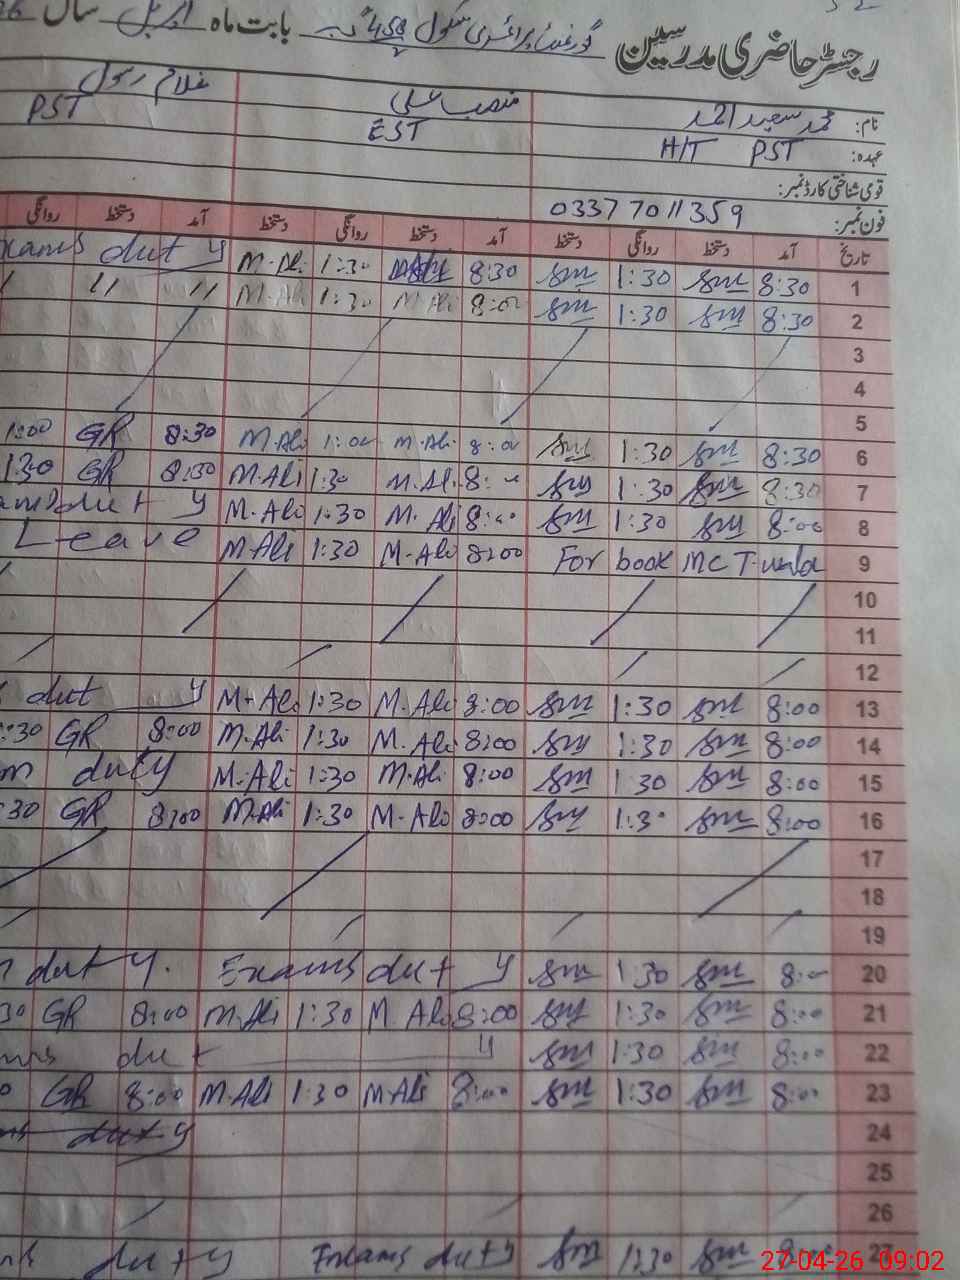 رجسٹر حاضری مدرسین گورنمنٹ پرائمری سکول 459 بابت ماہ اپریل سال
نام: محمد سعید احمد منصب علی غلام رسول
عہدہ: H/T PST EST PST
قومی شناختی کارڈ نمبر:
فون نمبر: 03377011359
تاریخ آمد دستخط روانگی دستخط آمد دستخط روانگی دستخط آمد دستخط روانگی
1 8:30 Sm 1:30 Sm 8:30 M.Ali 1:30 M.Ali duty
2 8:30 Sm 1:30 Sm 8:00 M.Ali 1:30 M.Ali 〃 〃
3
4
5
6 8:30 Sm 1:30 Sm 8:00 M.Ali 1:00 M.Ali 8:30 GR 1:00
7 8:30 Sm 1:30 Sm 8:00 M.Ali 1:30 M.Ali 8:30 GR 1:30
8 8:00 Sm 1:30 Sm 8:00 M.Ali 1:30 M.Ali duty
9 For book MC T. 8:00 M.Ali 1:30 M.Ali Leave
10
11
12
13 8:00 Sm 1:30 Sm 8:00 M.Ali 1:30 M.Ali duty
14 8:00 Sm 1:30 Sm 8:00 M.Ali 1:30 M.Ali 8:00 GR :30
15 8:00 Sm 1:30 Sm 8:00 M.Ali 1:30 M.Ali duty
16 8:00 Sm 1:30 Sm 8:00 M.Ali 1:30 M.Ali 8:00 GR 30
17
18
19
20 8:00 Sm 1:30 Sm Exams duty duty
21 8:00 Sm 1:30 Sm 8:00 M.Ali 1:30 M.Ali 8:00 GR 30
22 8:00 Sm 1:30 Sm duty
23 8:00 Sm 1:30 Sm 8:00 M.Ali 1:30 M.Ali 8:00 GR 0
24 duty
25
26
27 8:00 Sm 1:30 Sm Exams duty duty
27-04-26 09:02